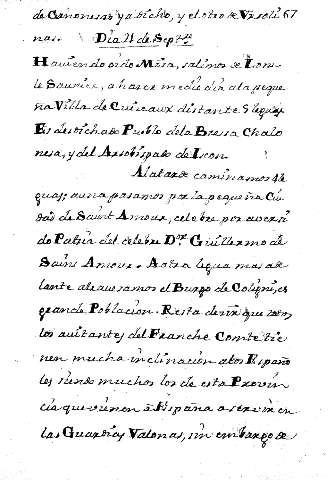 de Canonesas ya dicho, y el otro de Ursuli 67
nas. Dia 11 de Sept.re
Haviendo oido Misa, salimos de Lons-
le Saunier, a hacer medio dia a la peque
ña Villa de Cuiseaux distante 5 leguas
Es desdichado Pueblo de la Bressa Chalo
nesa, y del Arzobispado de Leon.
A la tarde caminamos 4 le
guas; a una pasamos por la pequeña Ciu
dad de Saint Amour, celebre por aver si
do Patria del celebre D.or Guillermo de
Saint Amour. A otra legua mas ade
lante atravesamos el Burgo de Coligni, es
grande Poblacion. Resta decir que todos
los avitantes del Franche Comte tie
nen mucha inclinacion a los Españo
les siendo muchos los de esta Provin
cia que vienen a España a servir en
las Guardias Valonas, sin embargo de